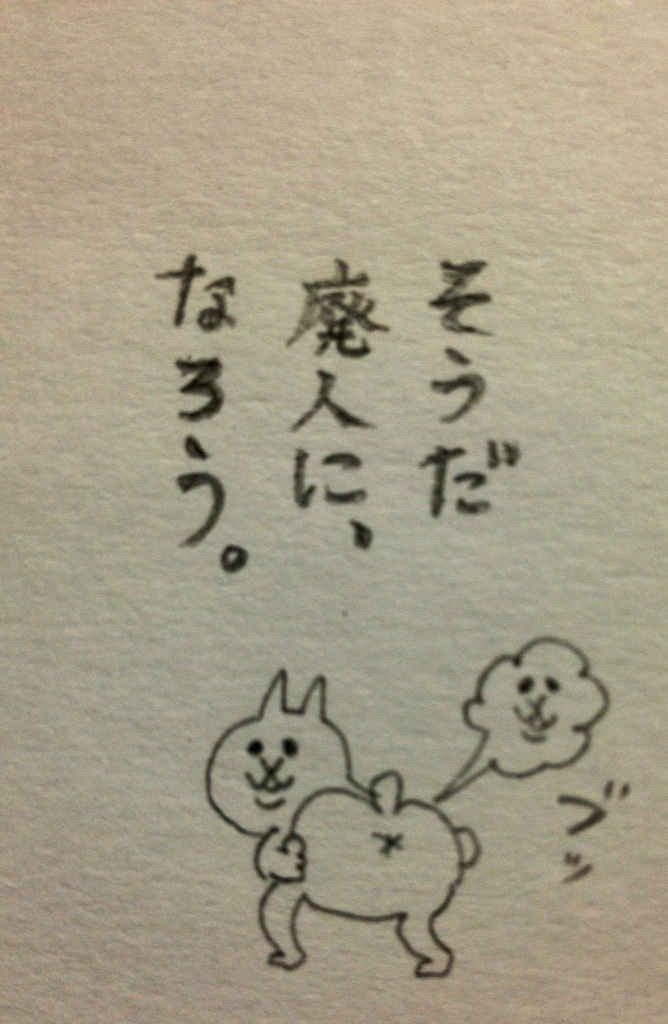 そうだ
廃人に、
なろう。
ブッ